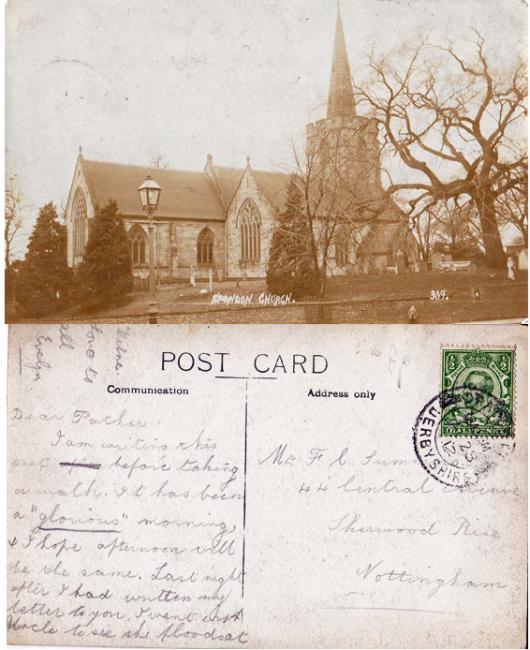 SPONDON CHURCH.
309.
love to
all
Evelyn
POST CARD
Communication
Address only
Dear Father
I am writing this
before taking
a walk. It has been
a "glorious" morning,
& I hope afternoon will
be the same. Last night
after I had written my
letter to you, I went with
Uncle to see the floods at
Mr F. C.
44 Central Avenue
Sherwood Rise
Nottingham
HALFPENNY
DERBYSHIRE
23
12